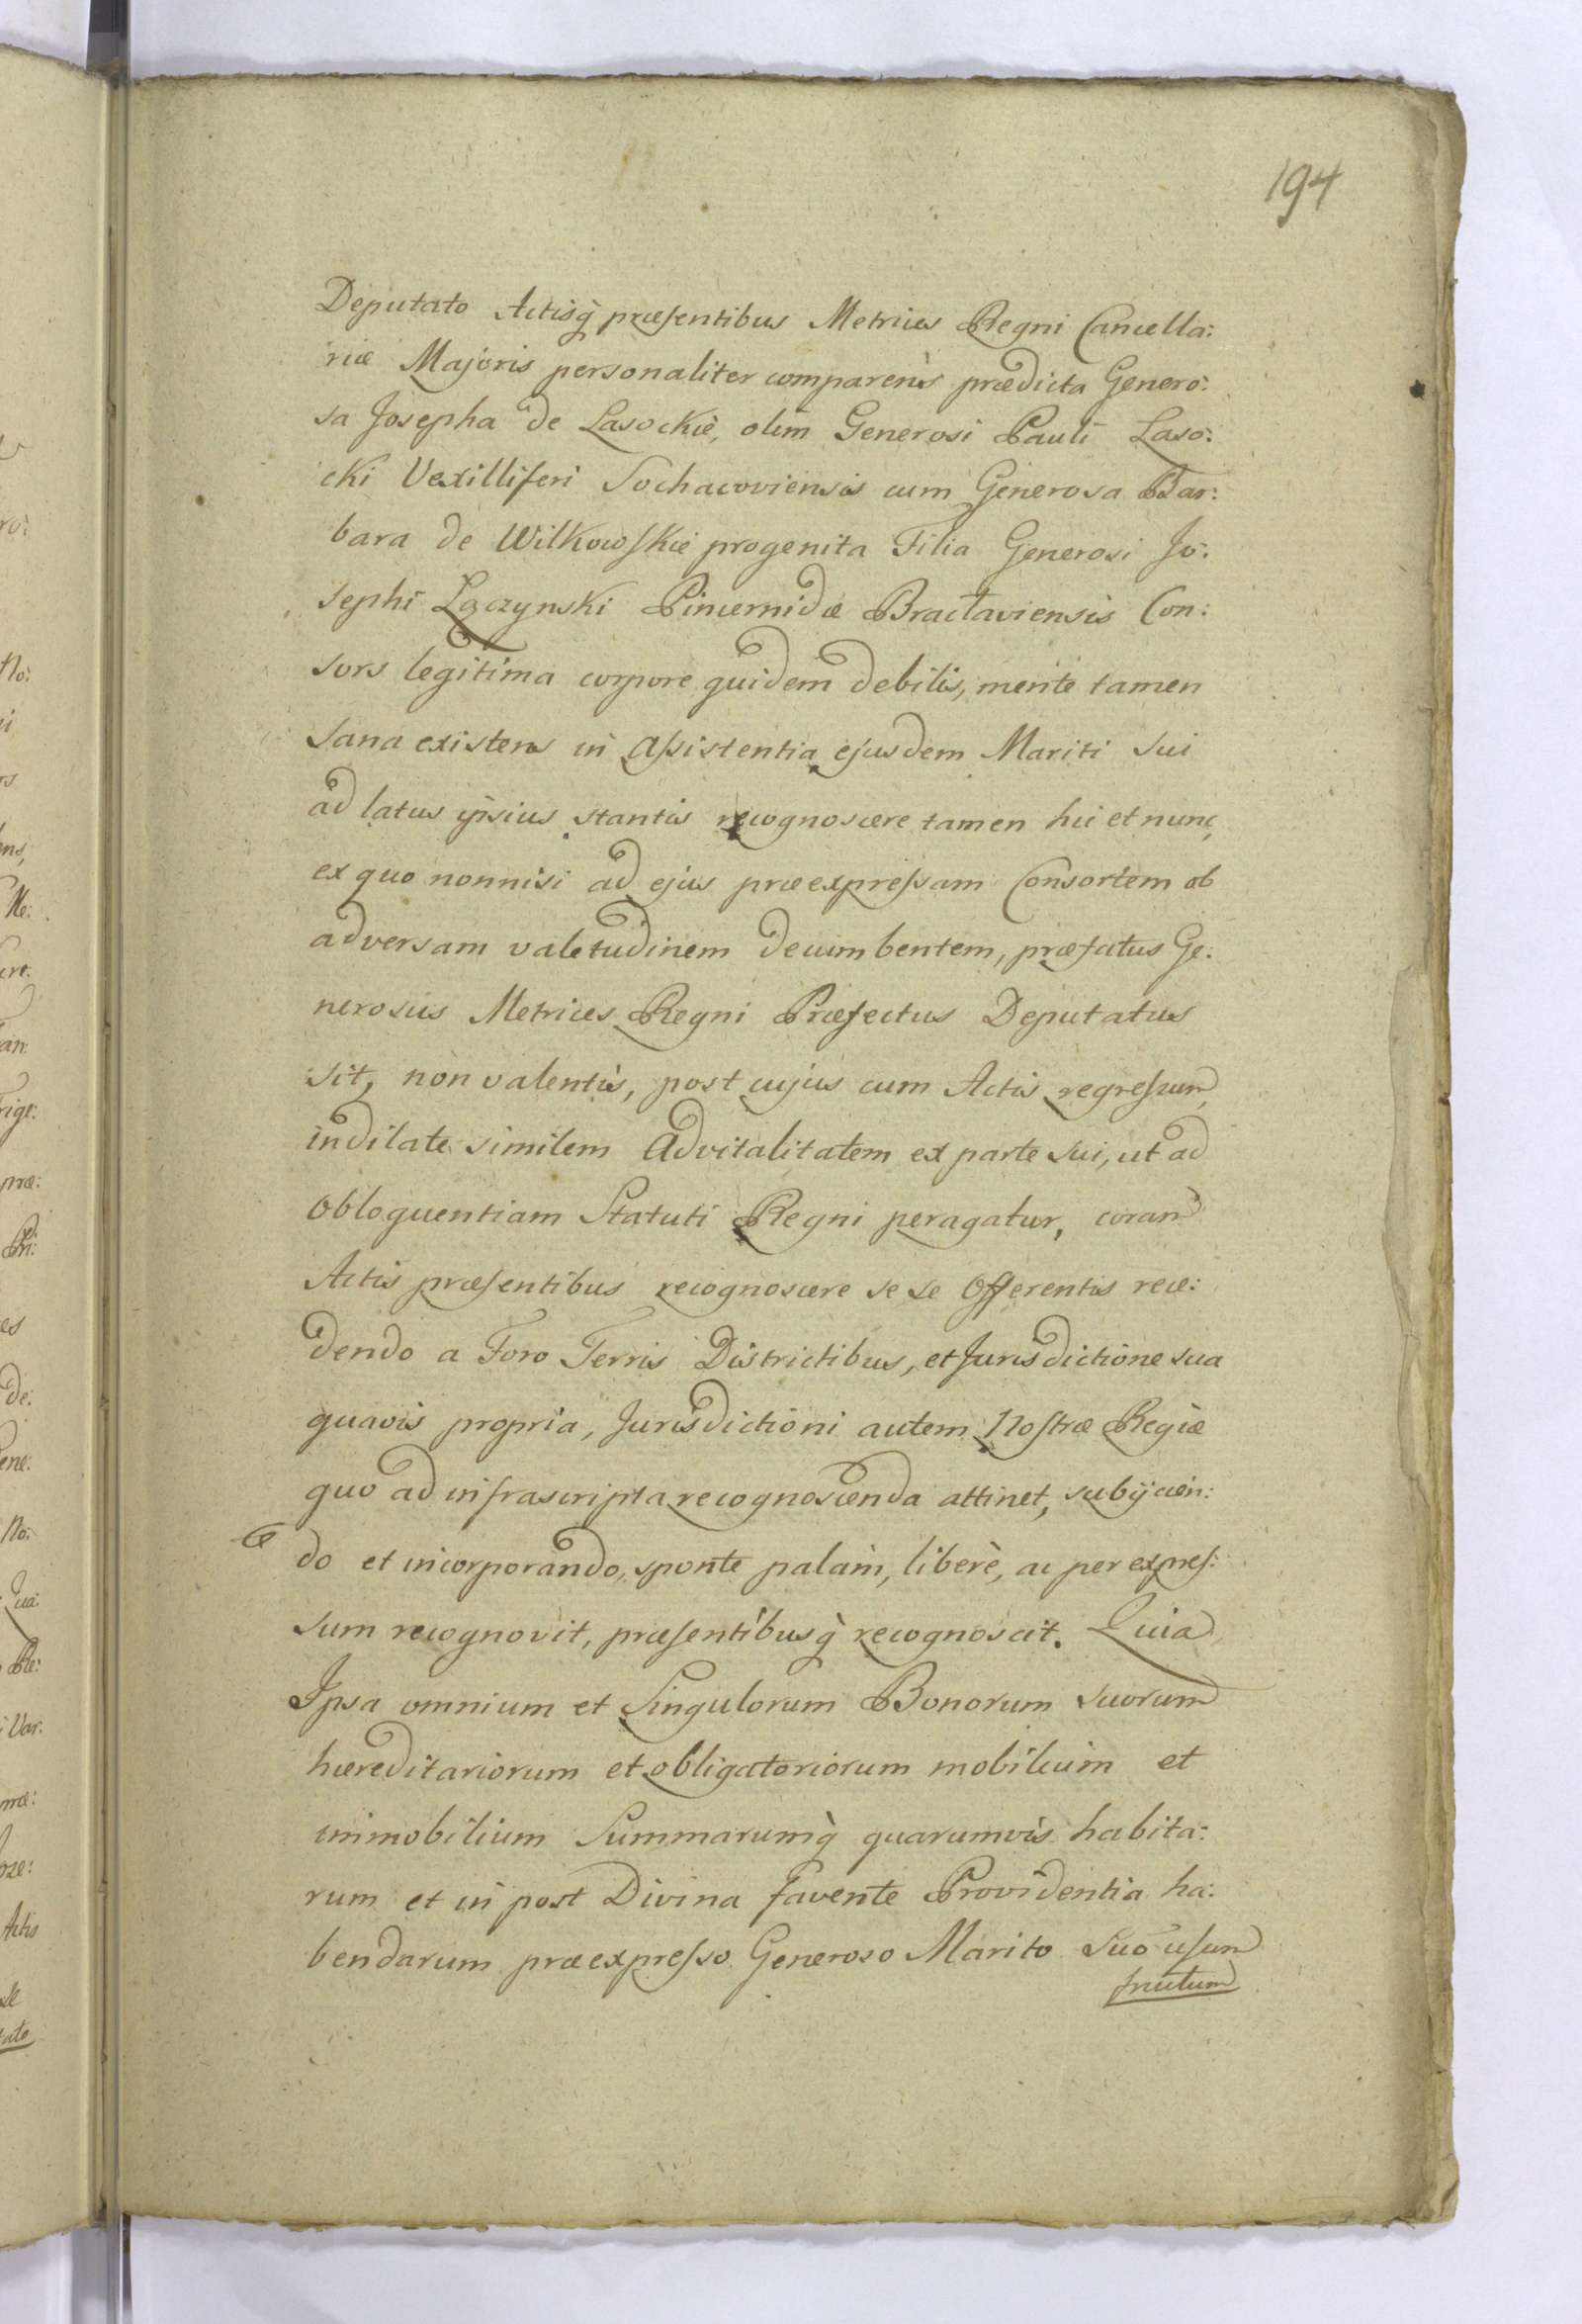 194
Deputato Actisq̀ præsentibus Metrices Regni Cancella:
riæ Majoris personaliter comparens prædicta Genero:
sa Josepha de Lasockie, olim Generosi Pauli Laso:
cki Vexilliferi Sochacoviensis cum Generosa Bar:
bara de Wilkowskie progenita Filia Generosi Jo:
sephi Łączynski Pincernidæ Braclaviensis Con:
sors legitima corpore quidem debilis, mente tamen
sana existens in Assistentia ejusdem Mariti sui
ad latus ipsius stantis recognoscere tamen hic et nunc,
ex quo nonnisi ad ejus præexpressam Consortem ob
adversam valetudinem decumbentem, præfatus Ge:
nerosus Metrices Regni Præfectus Deputatus
sit, non valentis, post cujus cum Actis regressum,
indilate similem Advitalitatem ex parte sui, ut ad
obloquentiam Statuti Regni peragatur, coram
Actis præsentibus recognoscere se se Offerentis rece:
dendo a Foro Terris Districtibus, et Jurisdictione sua
quavis propria, Jurisdictioni autem Nostræ Regiæ
quo ad infrascripta recognoscenda attinet, subijcien:
do et incorporando, sponte palam, liberè, ac per expres:
sum recognovit, præsentibusq̀ recognoscit. Quia
Ipsa omnium et Singulorum Bonorum suorum
hæreditariorum et obligatoriorum mobilium et
immobilium Summarumq̀ quarumvis habita:
rum et in post Divina favente Providentia ha:
bendarum præexpresso Generoso Marito suo usum
fructum